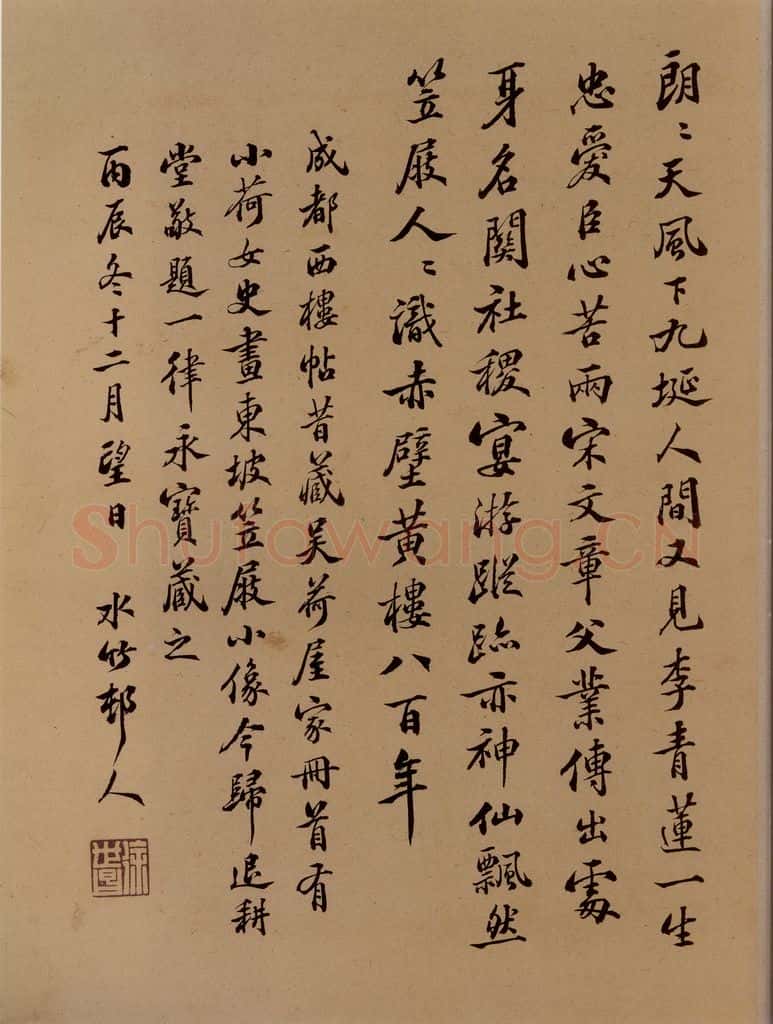 朗〻天風下九埏人間又見李青蓮一生
忠愛臣心苦兩宋文章父業傳出處
身名關社稷宴游蹤跡亦神仙飄然
笠屐人〻識赤壁黃樓八百年
成都西樓帖昔藏吴荷屋家冊首有
小荷女史畫東坡笠屐小像今歸退耕
堂敬題一律永寶藏之
丙辰冬十二月望日 水竹邨人
徐世昌
Shufawang.CN